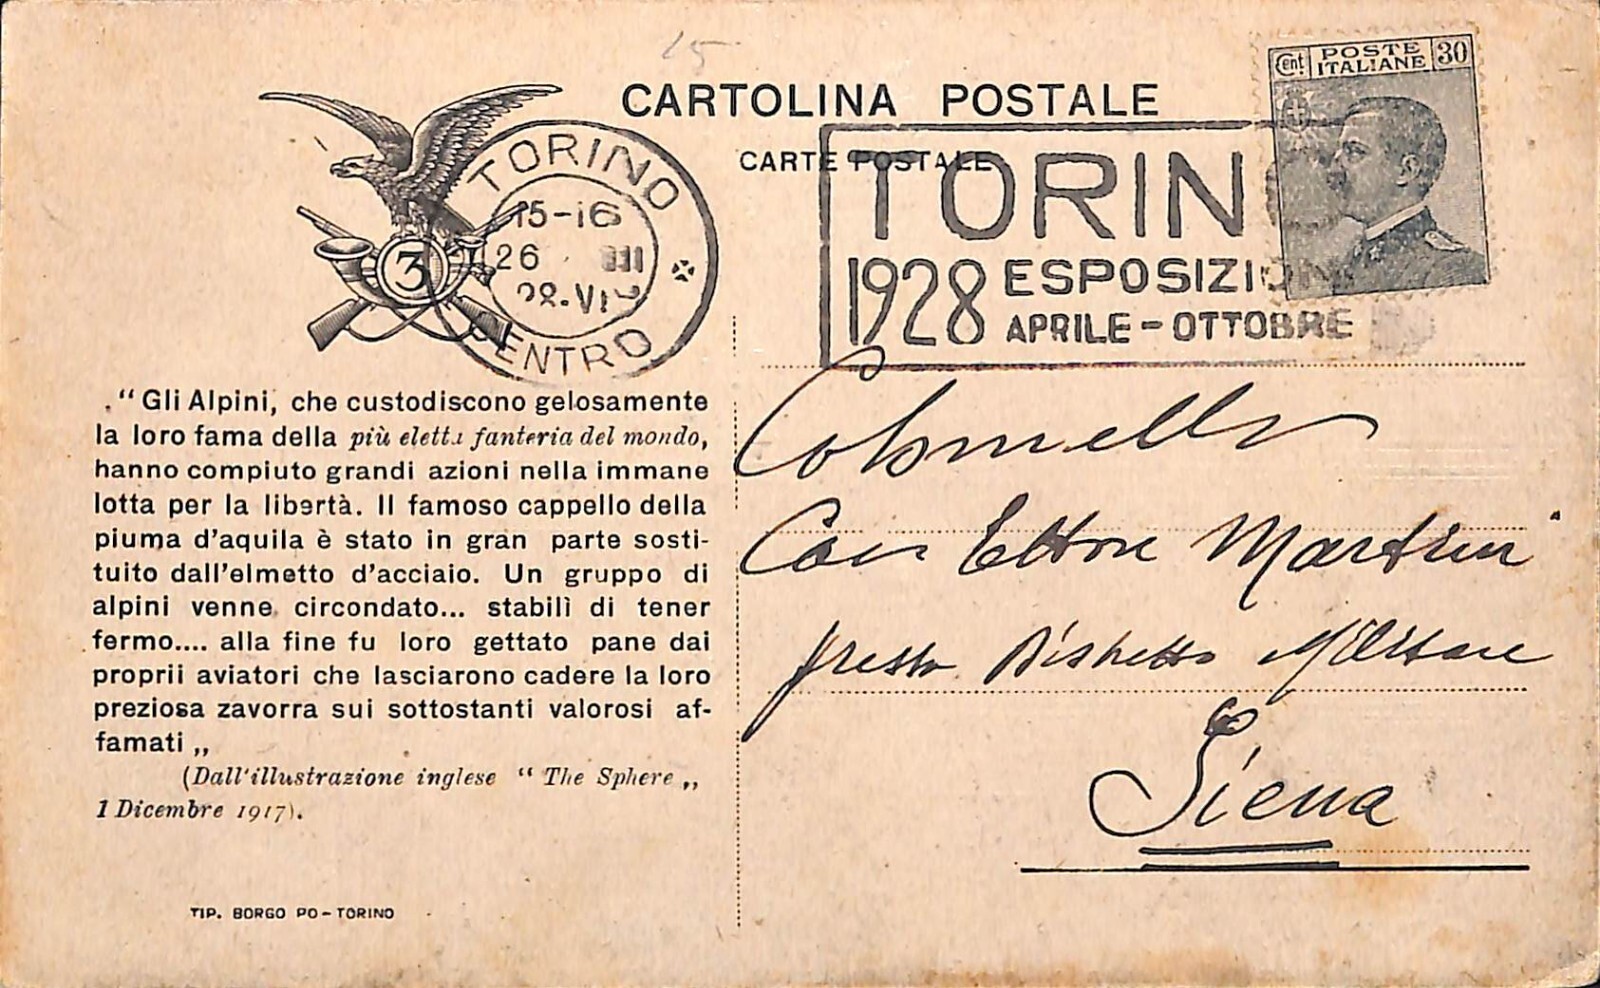 CARTOLINA POSTALE
CARTE POSTALE
Cent. POSTE ITALIANE 30
TORINO
15-16
26 III
28.VI
CENTRO
3
TORIN
1928 ESPOSIZION
APRILE - OTTOBRE
."Gli Alpini, che custodiscono gelosamente
la loro fama della più eletta fanteria del mondo,
hanno compiuto grandi azioni nella immane
lotta per la libertà. Il famoso cappello della
piuma d'aquila è stato in gran parte sosti-
tuito dall'elmetto d'acciaio. Un gruppo di
alpini venne circondato... stabilì di tener
fermo.... alla fine fu loro gettato pane dai
proprii aviatori che lasciarono cadere la loro
preziosa zavorra sui sottostanti valorosi af-
famati „
(Dall'illustrazione inglese “ The Sphere „
1 Dicembre 1917).
TIP. BORGO PO - TORINO
Colonnello
Cav Ettore Martini
presso Distretto Militare
Siena